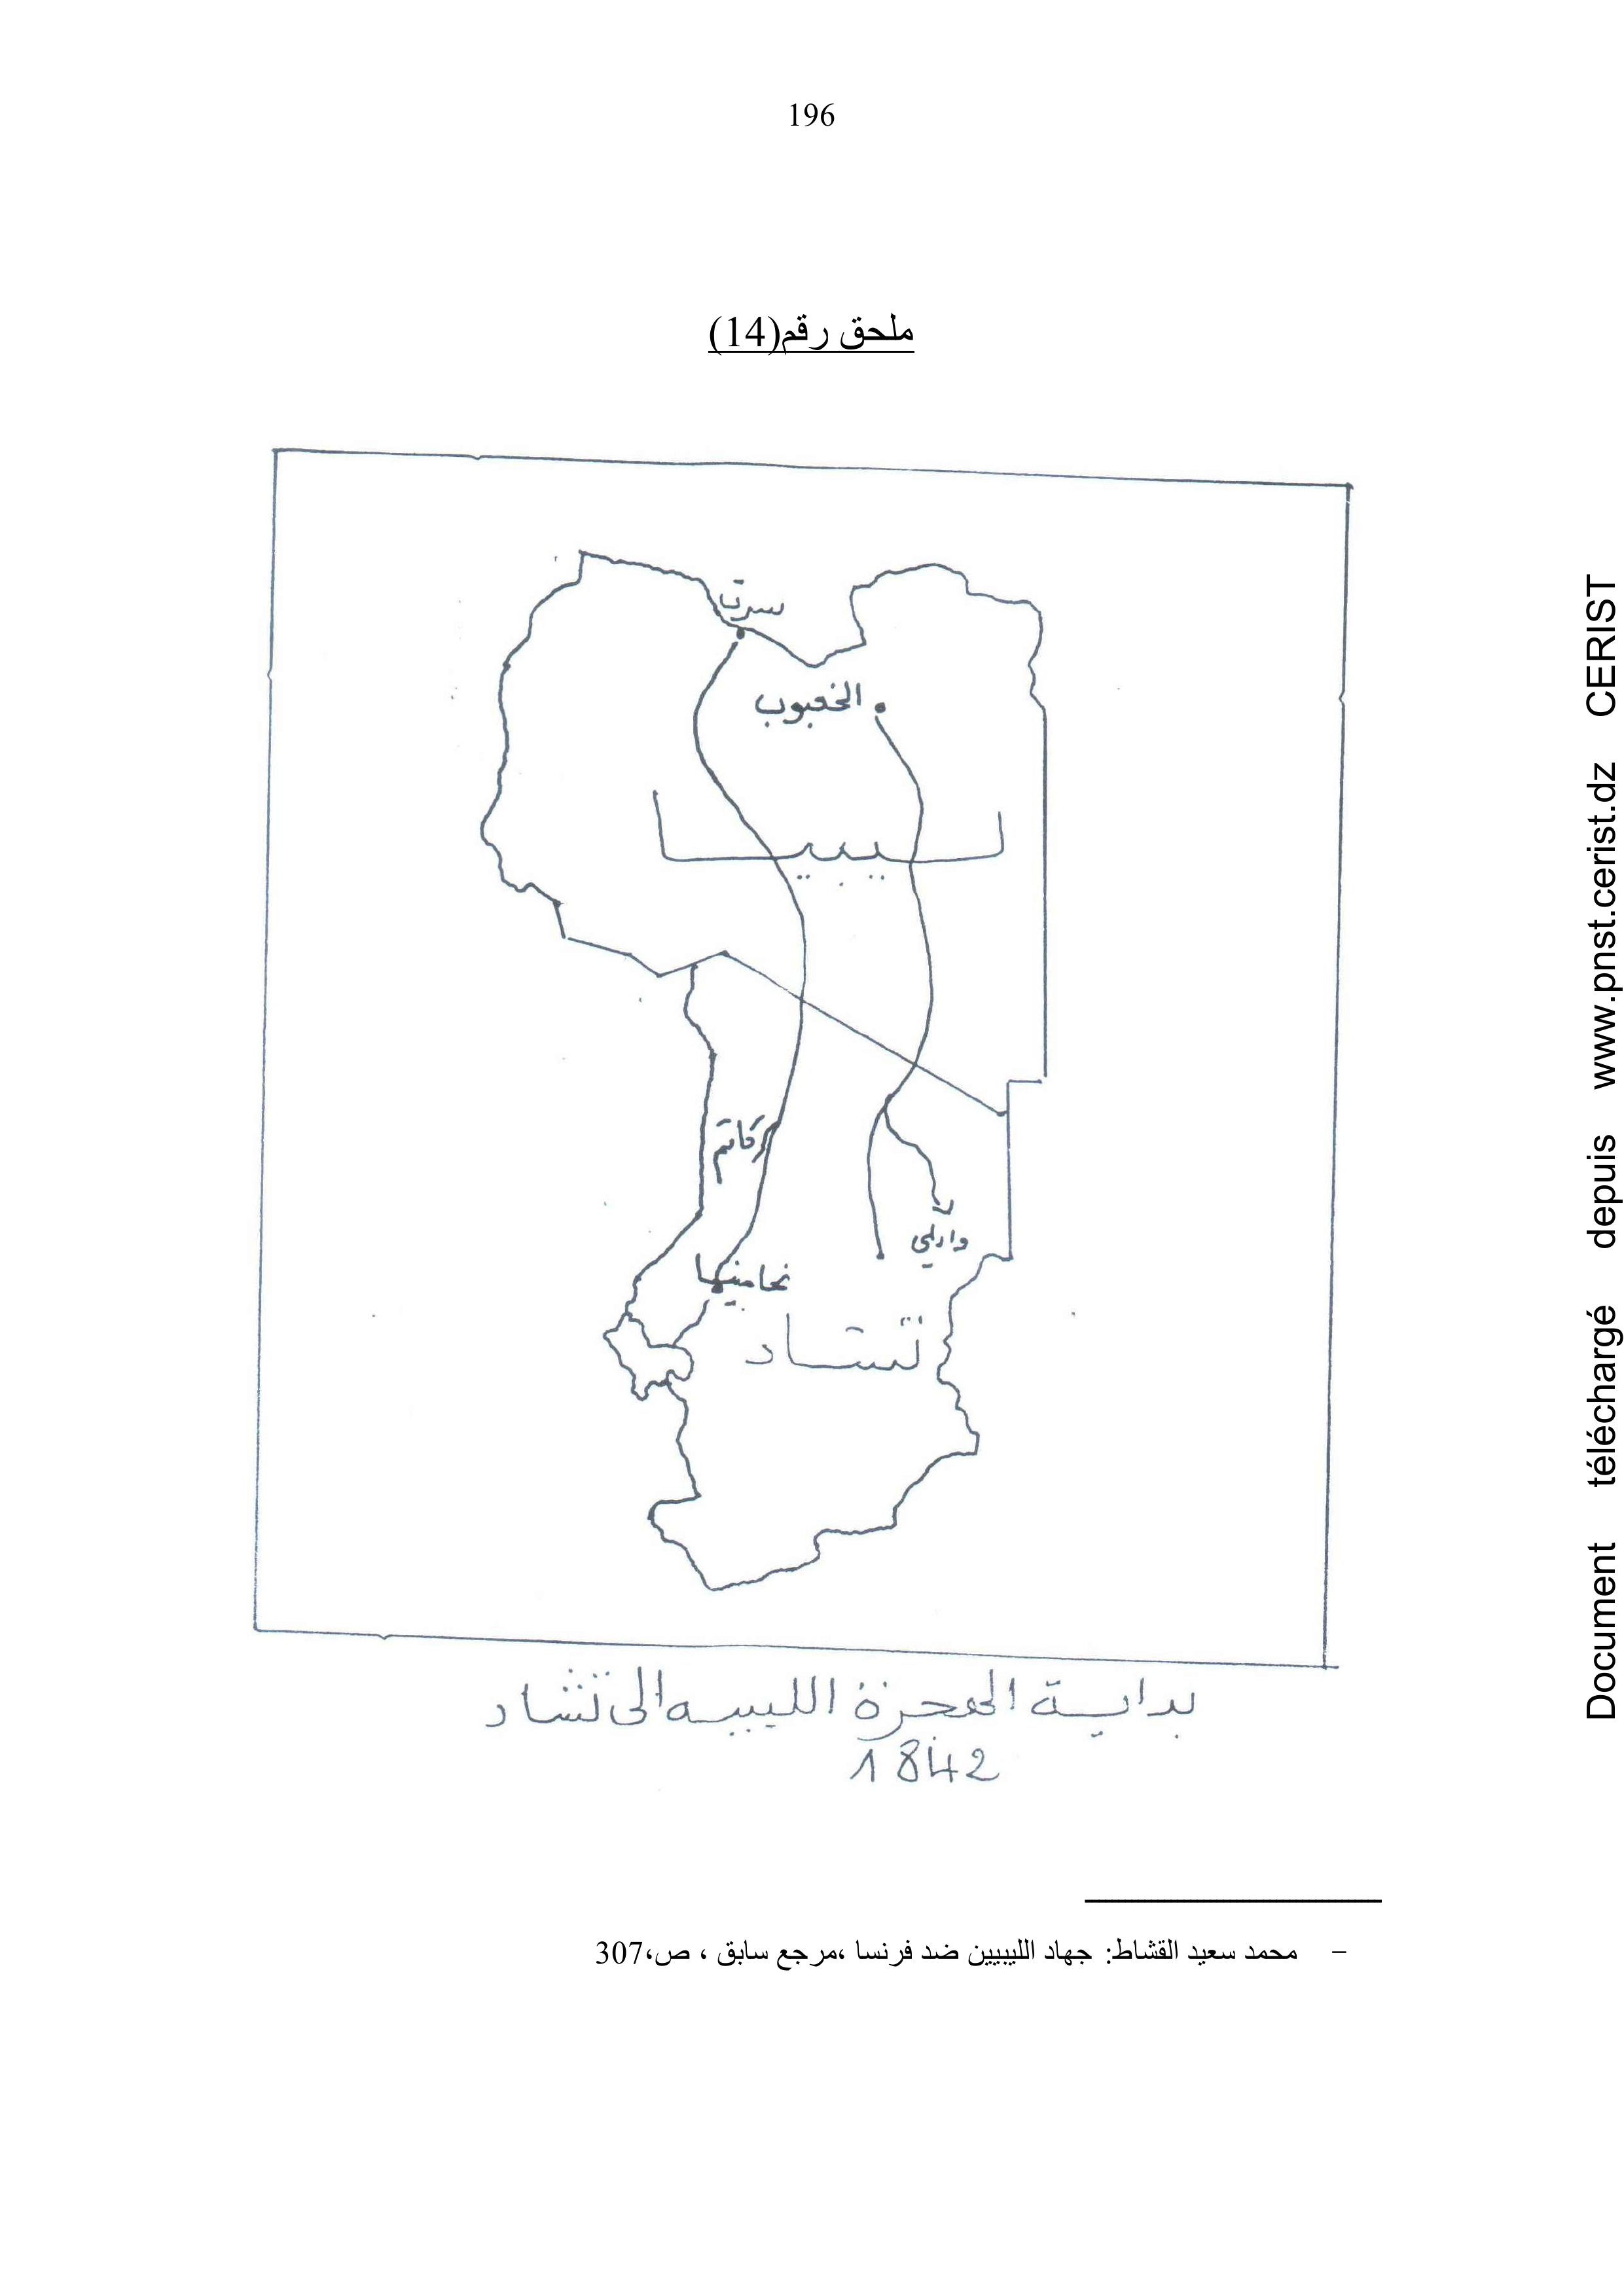 196
ملحق رقم(14)
سرت
الخعبوب
ليبيا
كانم
وادي
تشاد
بداية الهجرة الليبيه الى تشاد
1842
– محمد سعيد القشاط: جهاد الليبيين ضد فرنسا ،مرجع سابق ، ص،307
Document téléchargé depuis www.pnst.cerist.dz CERIST